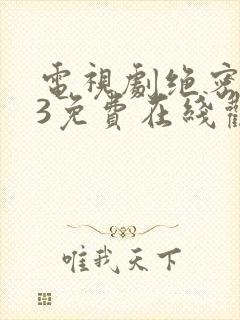 電視劇绝密
3免費在綫
唯我天下